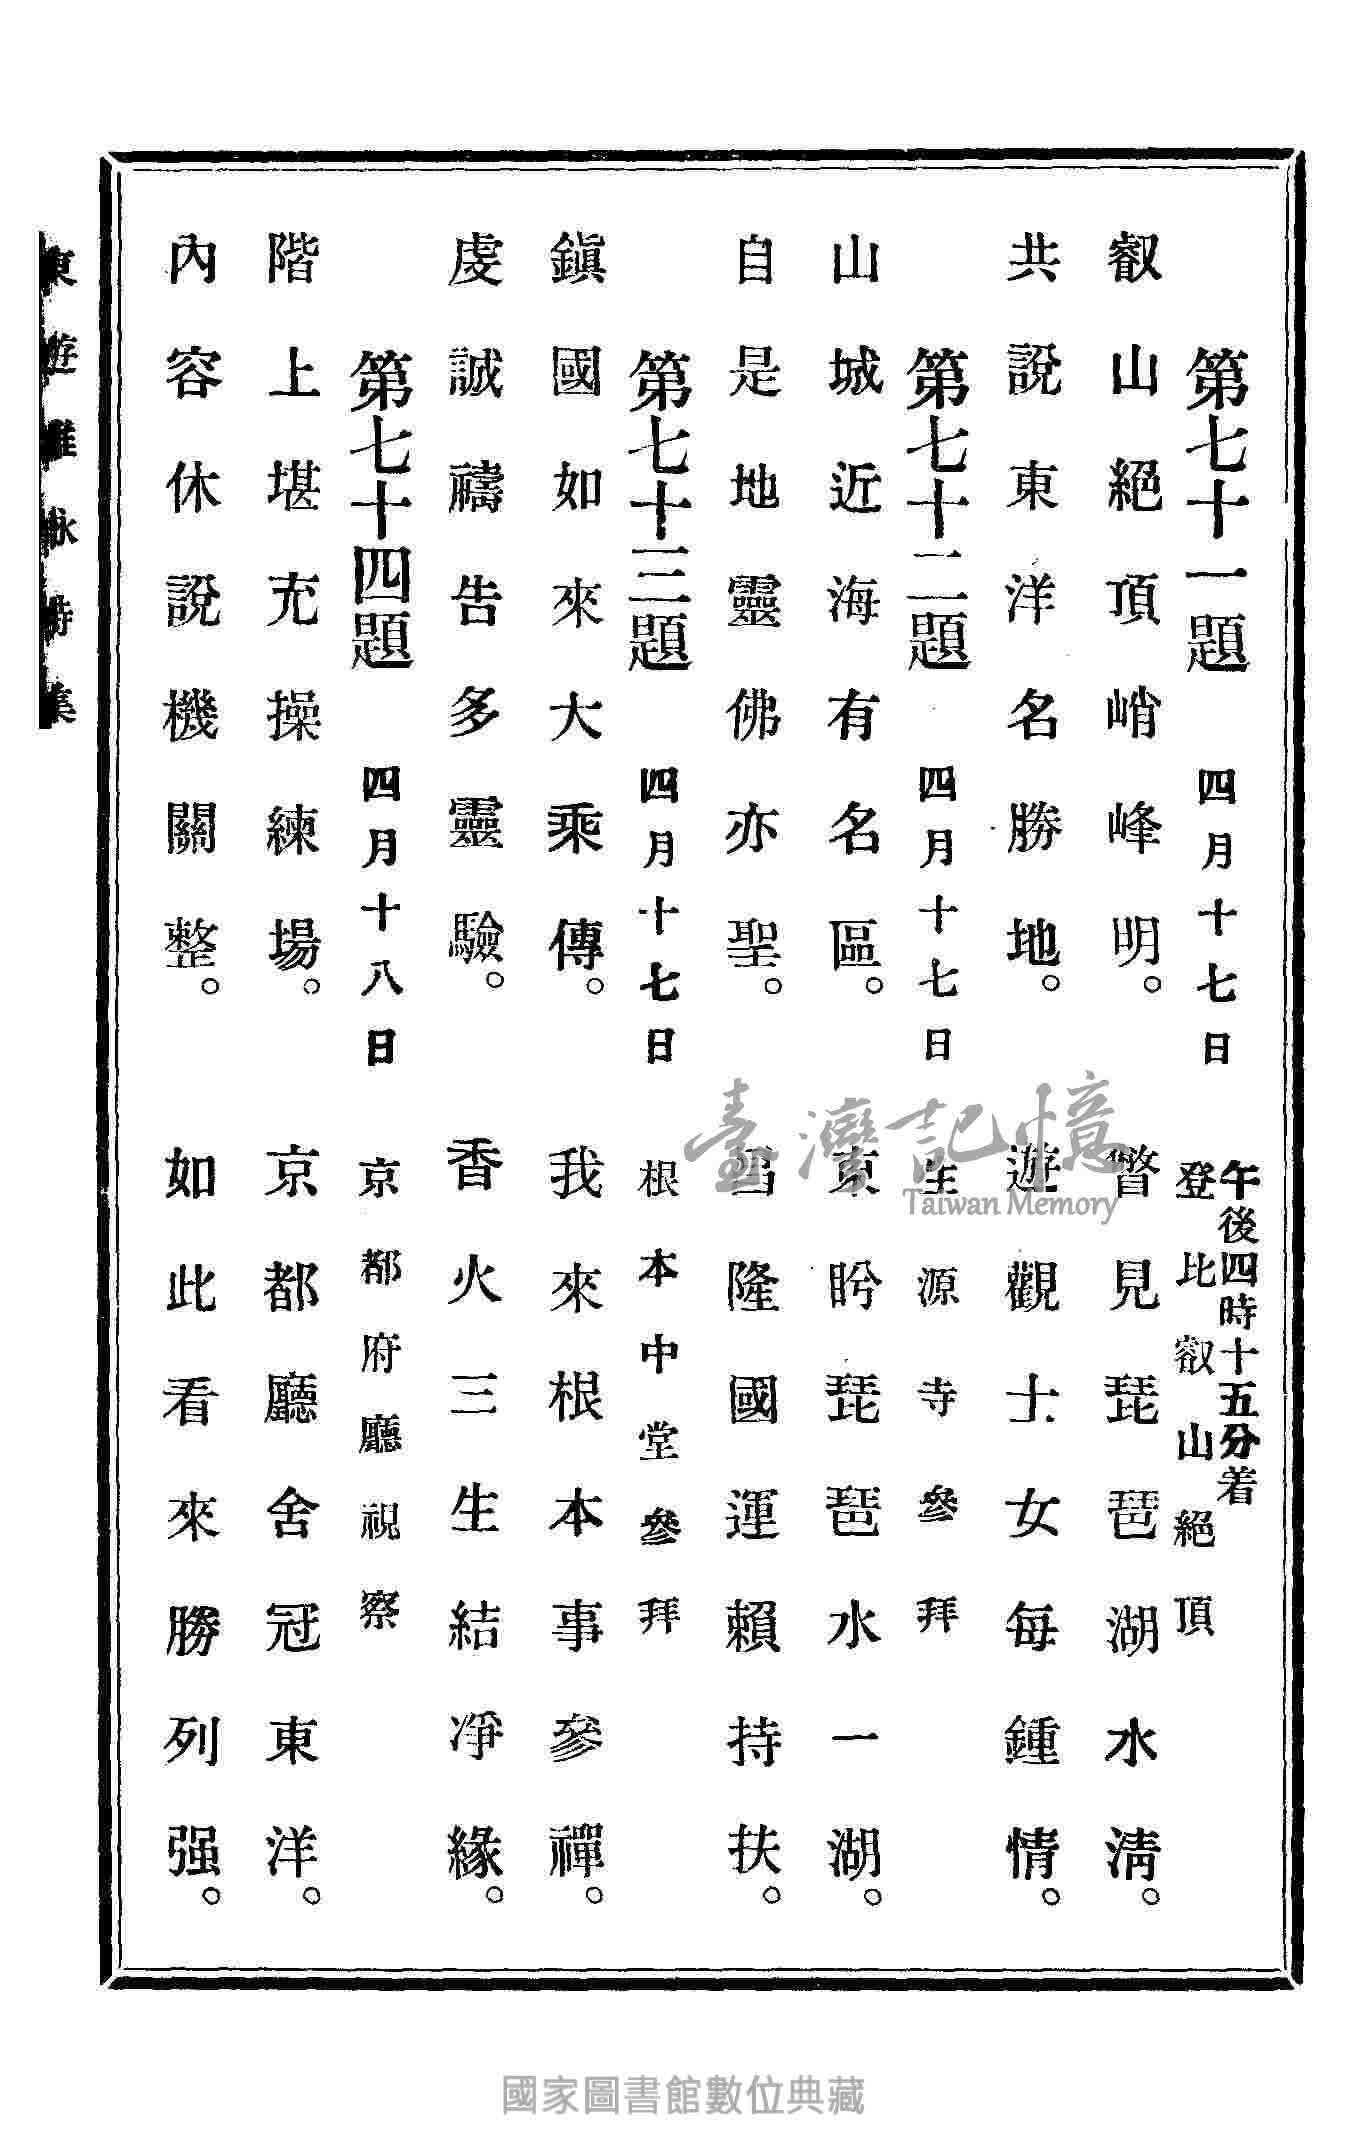 第七十一題 四月十七日 午後四時十五分着
登比叡山絕頂
叡山絕頂峭峰明。 瞥見琵琶湖水淸。
共說東洋名勝地。 遊觀士女每鍾情。
第七十二題 四月十七日 生源寺參拜
山城近海有名區。 東盻琵琶水一湖。
自是地靈佛亦聖。 昌隆國運賴持扶。
第七十三題 四月十七日 根本中堂參拜
鎭國如來大乘傳。 我來根本事參禪。
虔誠禱告多靈驗。 香火三生結凈緣。
第七十四題 四月十八日 京都府廳視察
階上堪充操練場。 京都廳舍冠東洋。
內容休說機關整。 如此看來勝列强。
東遊雜咏詩集
臺灣記憶
Taiwan Memory
國家圖書館數位典藏